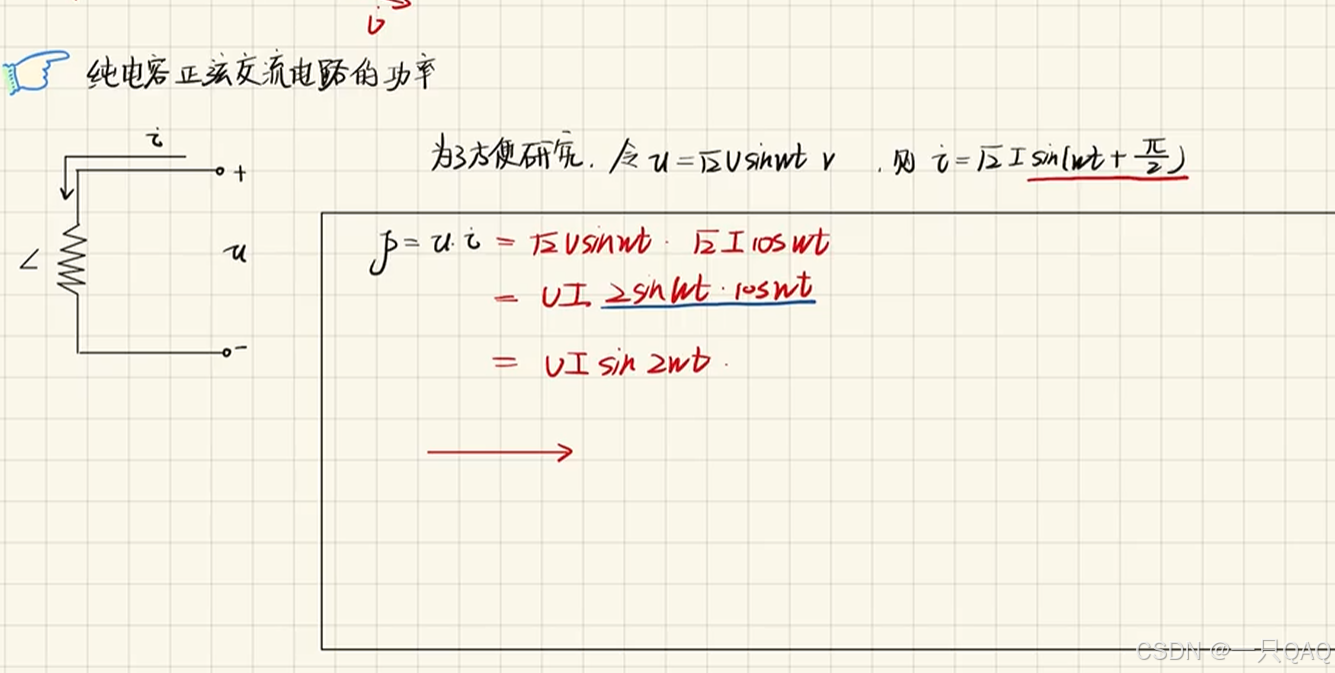 i
纯电容正弦交流电路的功率
i
为了方便研究. 令 u=√2Usinwt v .则 i=√2 I sin(wt+π/2)
+
L
u
-
p=u·i = √2Usinwt · √2 I coswt
= UI 2sinwt·coswt
= UI sin2wt.
CSDN @一只QAQ